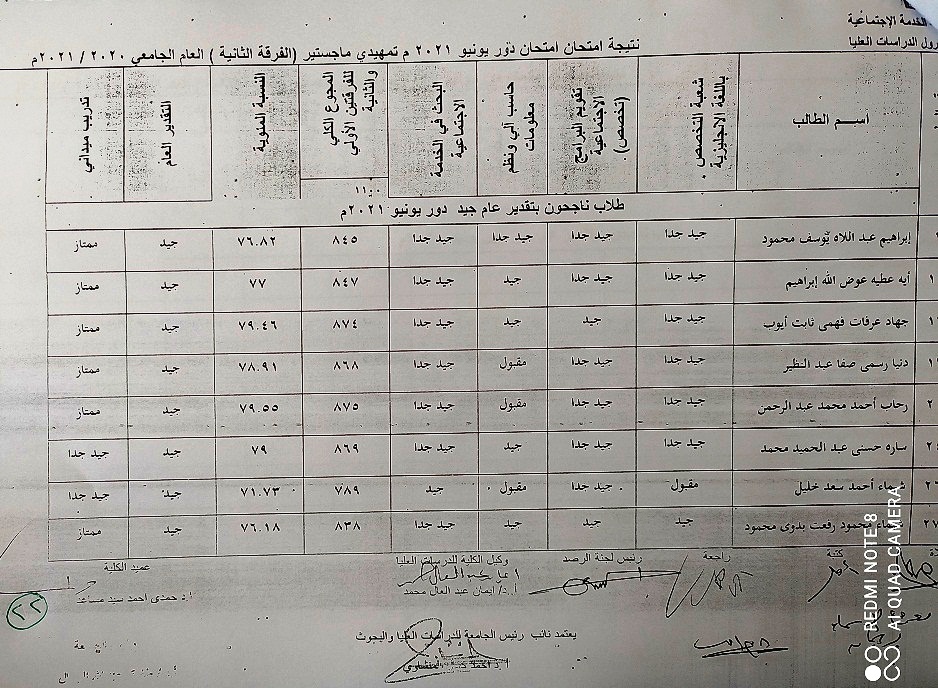 الخدمة الإجتماعية
الدراسات العليا
نتيجة امتحان امتحان دور يونيو ٢٠٢١ م تمهيدي ماجستير (الفرقة الثانية ) العام الجامعي ٢٠٢٠ / ٢٠٢١م
اسم الطالب شعبة التخصص باللغة الانجليزية تقويم البرامج الاجتماعية (تخصص) حاسب آلي ونظم معلومات البحث في الخدمة الاجتماعية المجموع الكلي للفرقتين الأولي والثانية النسبة المئوية التقدير العام تدريب ميداني
١١٠٠
طلاب ناجحون بتقدير عام جيد دور يونيو ٢٠٢١م
إبراهيم عبد اللاه يوسف محمود جيد جدا جيد جدا جيد جدا جيد جدا ٨٤٥ ٧٦.٨٢ جيد ممتاز
أيه عطيه عوض الله إبراهيم جيد جدا جيد جدا جيد جيد جدا ٨٤٧ ٧٧ جيد ممتاز
جهاد عرفات فهمى ثابت أيوب جيد جدا جيد جيد جيد جدا ٨٧٤ ٧٩.٤٦ جيد ممتاز
دنيا رسمى صفا عبد النظير جيد جدا جيد جدا مقبول جيد جدا ٨٦٨ ٧٨.٩١ جيد ممتاز
رحاب أحمد محمد عبد الرحمن جيد جدا جيد جدا مقبول جيد جدا ٨٧٥ ٧٩.٥٥ جيد ممتاز
ساره حسنى عبد الحميد محمد جيد جدا جيد جدا جيد جيد جدا ٨٦٩ ٧٩ جيد جيد جدا
٢٦ شيماء أحمد سعد خليل مقبول جيد جدا مقبول جيد ٧٨٩ ٧١.٧٣ جيد جيد جدا
٢٧ شيماء محمود رفعت بدوى محمود جيد جيد جيد جيد جدا ٨٣٨ ٧٦.١٨ جيد ممتاز
كتبة راجعة رئيس لجنة الرصد وكيل الكلية للدراسات العليا عميد الكلية
أ.د/ ايمان عبد العال محمد
ا د حمدى احمد سيد مساعد
٢٢
يعتمد نائب رئيس الجامعة للدراسات العليا والبحوث
REDMI NOTE 8
AI QUAD CAMERA